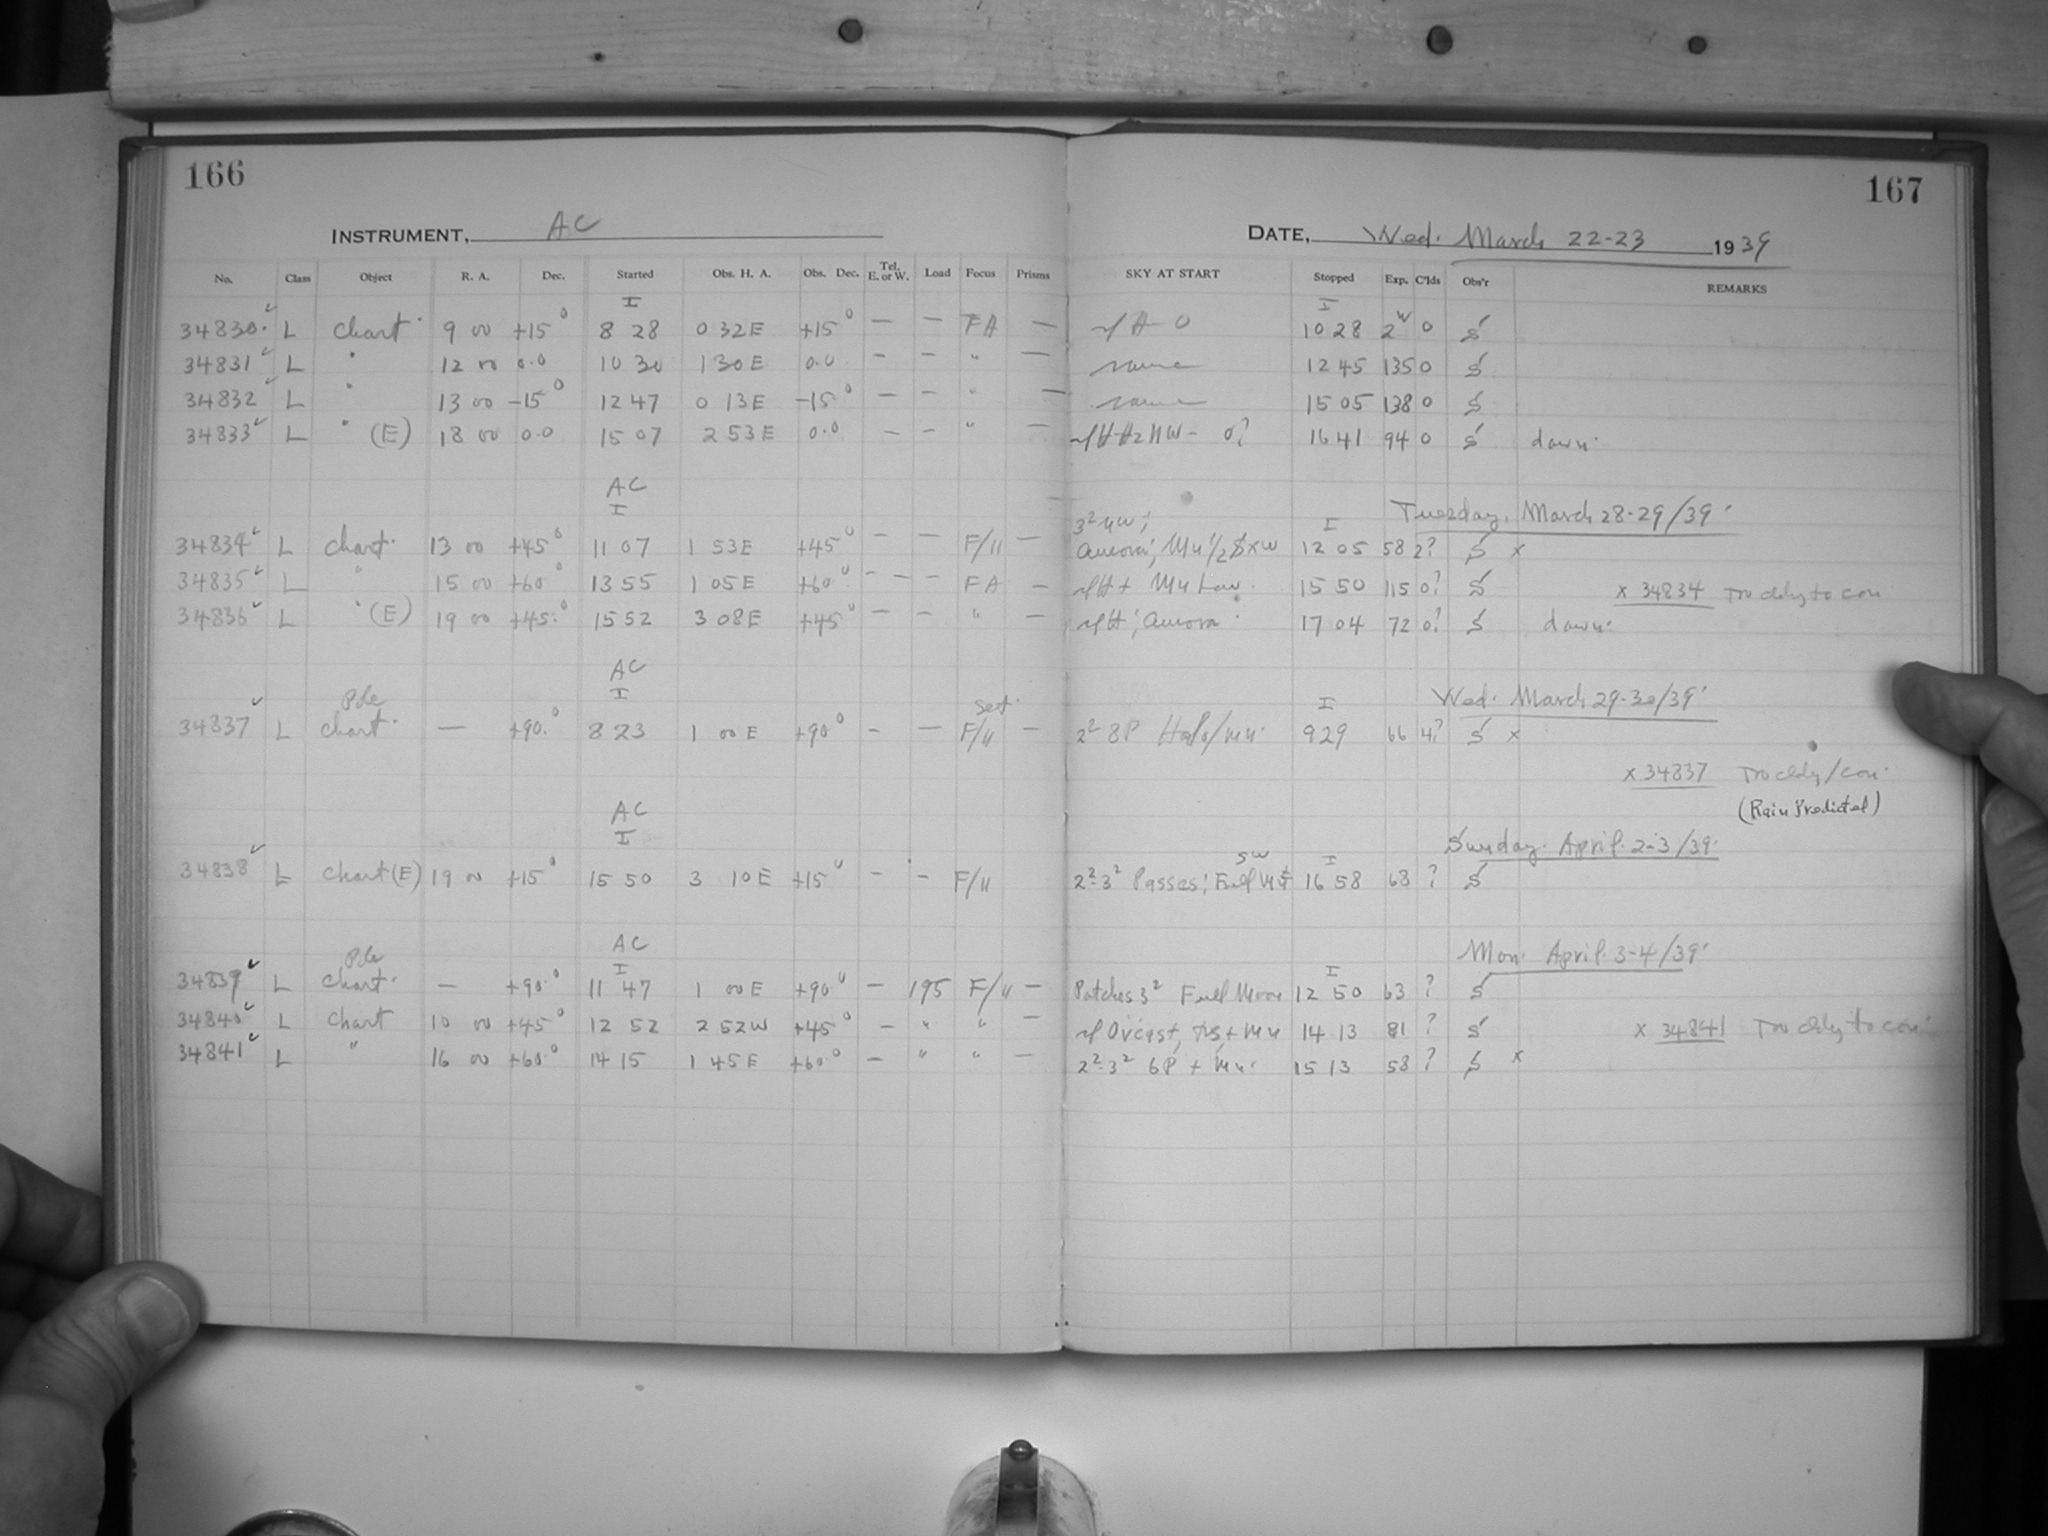 166
167
INSTRUMENT, AC
DATE, Wed. March 22-23 1939
No. Class Object R. A. Dec. Started Obs. H. A. Obs. Dec. Tel. E. or W. Load Focus Prisms SKY AT START Stopped Exp. C'lds Obs'r REMARKS
I I
34830 L Chart 9 00 +15° 8 28 0 32E +15° — — FA — 10 28 0 S
34831 L " 12 00 0.0 10 30 1 30E 0.0 — — " — same 12 45 135 0 S
34832 L " 13 00 -15° 12 47 0 13E -15° — — " — same 15 05 138 0 S
34833 L " (E) 18 00 0.0 15 07 2 53E 0.0 — — " — 0? 16 41 94 0 S dawn.
AC
Tuesday, March 28-29/39.
I I
34834 L Chart 13 00 +45° 11 07 1 53E +45° — — F/11 — Aurora; 12 05 58 2? S x
34835 L " 15 00 +60° 13 55 1 05E +60° — — FA — 15 50 115 0? S x 34834 Too cldy to con.
34836 L " (E) 19 00 +45° 15 52 3 08E +45° — — " — Aurora 17 04 72 0? S dawn.
AC
Wed. March 29-30/39.
I I
34837 L Pole Chart — +90° 8 23 1 00E +90° — — set F/11 — 2² 8P Halo/Mn. 9 29 66 4? S x
x 34837 Too cldy/con.
(Rain Predicted)
AC
Sunday. April. 2-3/39.
I I
34838 L Chart (E) 19 00 +15° 15 50 3 10E +15° — — F/11 2²-3² Passes; Full Mn SW 16 58 68 ? S
AC
Mon. April. 3-4/39.
I I
34839 L Pole Chart — +90° 11 47 1 00E +90° — 195 F/11 — Patches 3² Full Moon 12 50 63 ? S
34840 L Chart 10 00 +45° 12 52 2 52W +45° — " " — + Mn 14 13 81 ? S x 34841 Too cldy to con.
34841 L " 16 00 +60° 14 15 1 45E +60° — " " — 2²-3² 6P + Mn. 15 13 58 ? S x